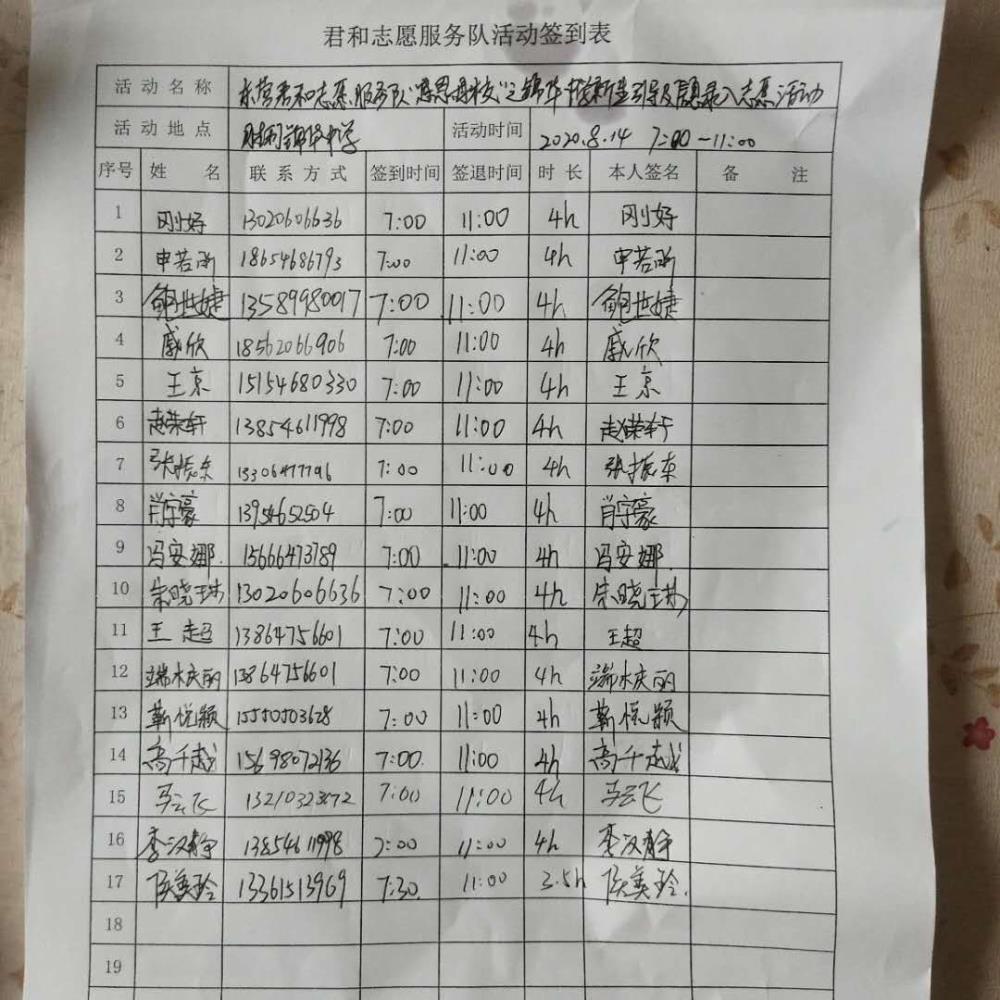 君和志愿服务队活动签到表
活动名称 东营君和志愿服务队"感恩母校"之锦华中学新生引导及信息录入志愿活动
活动地点 胜利锦华中学 活动时间 2020.8.14 7:00-11:00
序号 姓名 联系方式 签到时间 签退时间 时长 本人签名 备注
1 刚好 13020606636 7:00 11:00 4h 刚好
2 申若函 18654686793 7:00 11:00 4h 申若函
3 鲍世婕 13589980017 7:00 11:00 4h 鲍世婕
4 戚欣 18562066906 7:00 11:00 4h 戚欣
5 王京 15154680330 7:00 11:00 4h 王京
6 赵荣轩 13854611998 7:00 11:00 4h 赵荣轩
7 张振东 7:00 11:00 4h 张振东
8 肖宇豪 13954652504 7:00 11:00 4h 肖宇豪
9 冯安娜. 15666473789 7:00 11:00 4h 冯安娜.
10 宋晓琳 13020606636 7:00 11:00 4h 宋晓琳
11 王超 13864756601 7:00 11:00 4h 王超
12 端木庆丽 13864756601 7:00 11:00 4h 端木庆丽
13 靳悦颖 15550503628 7:00 11:00 4h 靳悦颖
14 高千越 15698072136 7:00. 11:00 4h 高千越
15 马云飞 7:00 11:00 4h 马云飞
16 李汉静 13854611998 7:00 11:00 4h 李汉静
17 侯美玲 13361513969 7:30. 11:00 3.5h 侯美玲.
18
19